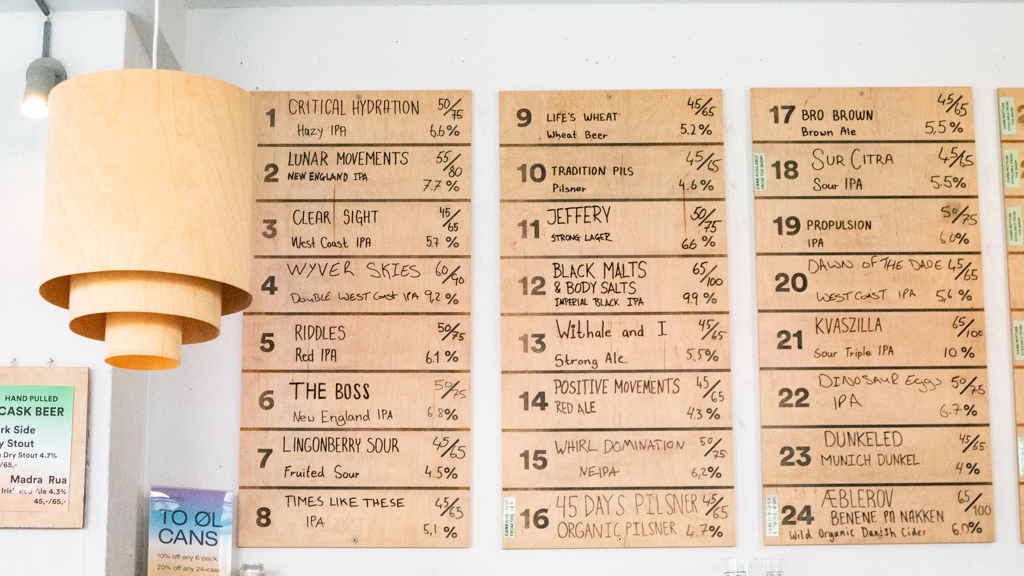 1 CRITICAL HYDRATION 50/75
Hazy IPA 6.6%
2 LUNAR MOVEMENTS 55/80
NEW ENGLAND IPA 7.7%
3 CLEAR SIGHT 45/65
West Coast IPA 5.7 %
4 WYVER SKIES 60/90
DOUBLE WEST COAST IPA 9,2 %
5 RIDDLES 50/75
Red IPA 6.1 %
6 THE BOSS 50/75
New England IPA 6.8%
7 LINGONBERRY SOUR 45/65
Fruited Sour 4.5%
8 TIMES LIKE THESE 45/65
IPA 5,1 %
9 LIFE'S WHEAT 45/65
Wheat Beer 5.2%
10 TRADITION PILS 45/65
Pilsner 4.6%
11 JEFFERY 50/75
STRONG LAGER 6.6 %
12 BLACK MALTS 65/100
& BODY SALTS
IMPERIAL BLACK IPA 9.9 %
13 Withale and I 45/65
Strong Ale 5,5%
14 POSITIVE MOVEMENTS 45/65
RED ALE 4.3 %
15 WHIRL DOMINATION 50/75
NEIPA 6,2%
16 45 DAYS PILSNER 45/65
ORGANIC PILSNER 4.7%
17 BRO BROWN 45/65
Brown Ale 5,5%
18 SUR CITRA 45/65
Sour IPA 5.5%
19 PROPULSION 50/75
IPA 6,0%
20 DAWN OF THE DADE 45/65
WEST COAST IPA 5,6 %
21 KVASZILLA 65/100
Sour Triple IPA 10 %
22 DINOSAUR Eggs 50/75
IPA 6.7%
23 DUNKELED 45/65
MUNICH DUNKEL 4 %
24 ÆBLEROV 65/100
BENENE PÅ NAKKEN
Wild Organic Danish Cider 6.0%
HAND PULLED
CASK BEER
rk Side
y Stout
Dry Stout 4.7%
/65,-
Madra Rua
Irish Red Ale 4.3%
45,-/65,-
TO ØL
CANS
10% off any 6-pack
20% off any 24-case